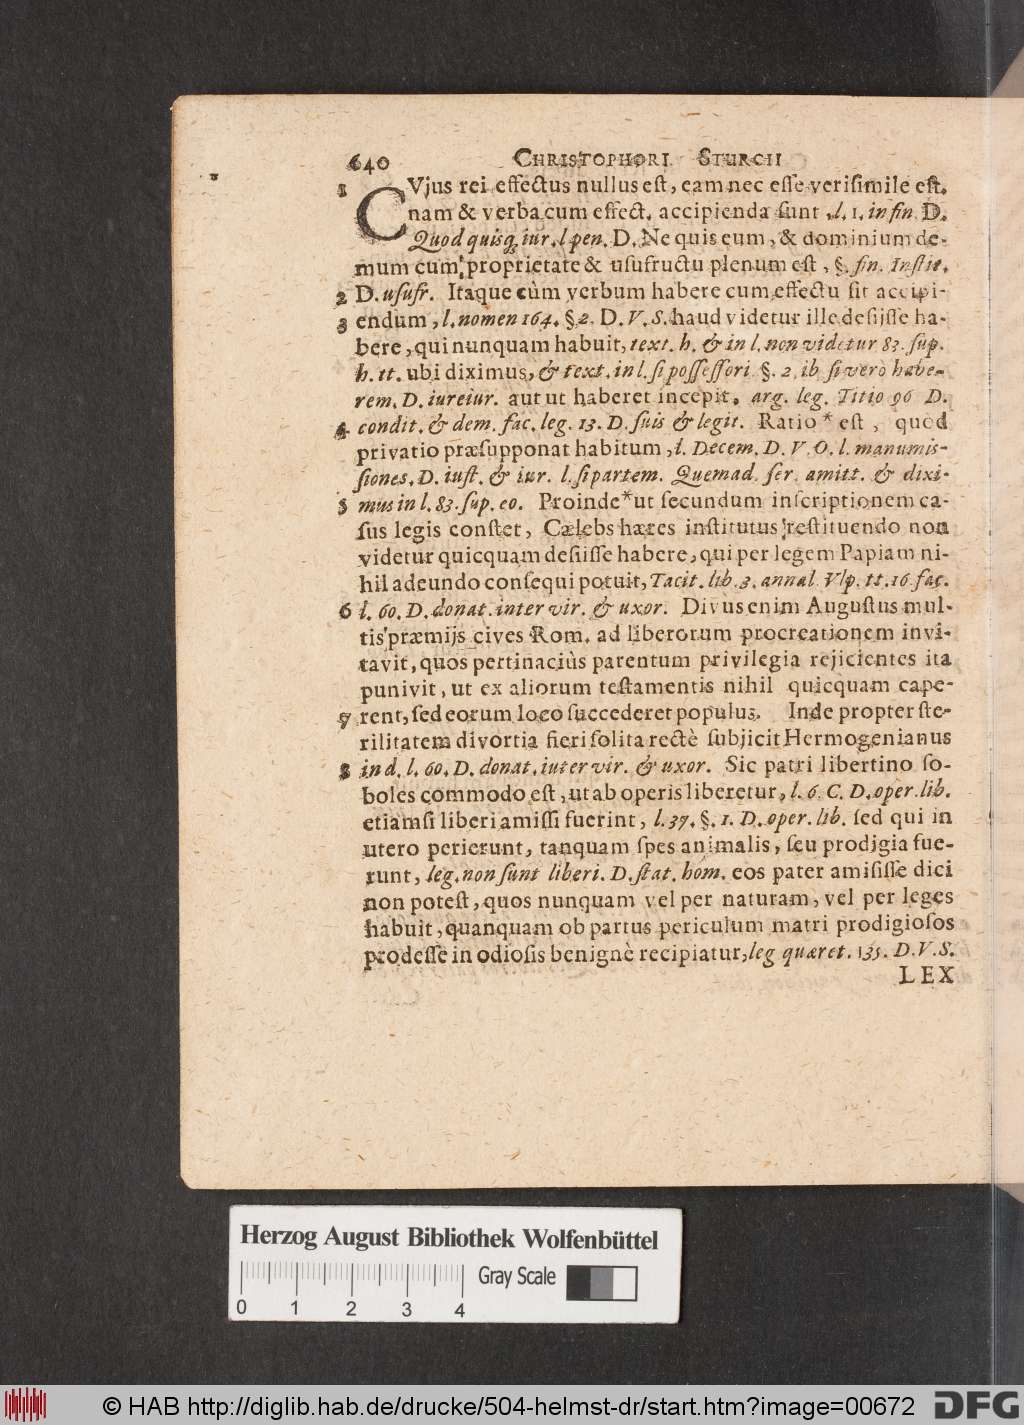 640 CHRISTOPHORI STURCII
1 CVjus rei effectus nullus est, eam nec esse verisimile est.
nam & verba cum effect. accipienda sunt, l. 1. in fin D.
Quod quisq́; iur. l pen. D. Ne quis eum, & dominium de-
mum cum proprietate & usufructu plenum est, §. fin. Instit.
2 D. usufr. Itaque cùm verbum habere cum effectu sit accipi-
3 endum, l. nomen 164. §. 2. D. V. S. haud videtur ille desijsse ha-
bere, qui nunquam habuit, text. h. & in l. non videtur 83. sup.
h. tt. ubi diximus, & text. in l. si possessori §. 2. ib si verò habe-
rem. D. iureiur. aut ut haberet incepit. arg. leg. Titio 96 D.
4 condit. & dem. fac. leg. 13. D. suis & legit. Ratio * est, quod
privatio præsupponat habitum, l. Decem. D. V. O. l. manumis-
siones. D. iust. & iur. l. si partem. Quemad. ser. amitt. & dixi-
5 mus in l. 83. sup. eo. Proinde * ut secundum inscriptionem ca-
sus legis constet, Cælebs hæres institutus restituendo non
videtur quicquam desiisse habere, qui per legem Papiam ni-
hil adeundo consequi potuit, Tacit. lib. 3. annal. Vlp. tt. 16. fac.
6 l. 60. D. donat. inter vir. & uxor. Divus enim Augustus mul-
tis præmijs cives Rom. ad liberorum procreationem invi-
tavit, quos pertinaciùs parentum privilegia rejicientes ita
punivit, ut ex aliorum testamentis nihil quicquam cape-
7 rent, sed eorum loco succederet populus. Inde propter ste-
rilitatem divortia fieri solita rectè subjicit Hermogenianus
8 in d. l. 60. D. donat. iuter vir. & uxor. Sic patri libertino so-
boles commodo est, ut ab operis liberetur, l. 6. C. D. oper. lib.
etiamsi liberi amissi fuerint, l. 37. §. 1. D. oper. lib. sed qui in
utero perierunt, tanquam spes animalis, seu prodigia fue-
runt, leg. non sunt liberi. D. stat. hom. eos pater amisisse dici
non potest, quos nunquam vel per naturam, vel per leges
habuit, quanquam ob partus periculum matri prodigiosos
prodesse in odiosis benignè recipiatur, leg quæret. 135. D. V. S.
LEX
Herzog August Bibliothek Wolfenbüttel
0 1 2 3 4 Gray Scale
© HAB http://diglib.hab.de/drucke/504-helmst-dr/start.htm?image=00672 DFG